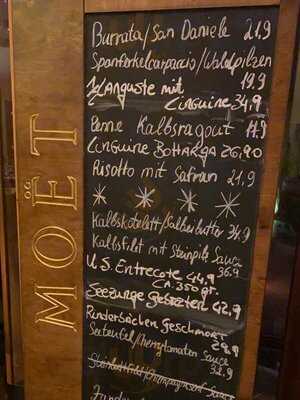 MOËT
Burrata/San Daniele 21,9
Spanferkelcarpaccio/Waldpilzen
19.9
1/2 Languste mit
Linguine 34,9
Penne Kalbsragout 19,9
Linguine Bottarga 26,90
Risotto mit Safran 21,9
Kalbskotelett/Salbeibutter 34,9
Kalbsfilet mit Steinpilz Sauce
36,9
U.S. Entrecote 44,9
CA. 350 gr.
Seezunge gebraten 42,9
Rinderbäckchen geschmort
29,9
Seeteufel/Cherrytomaten Sauce
32,9